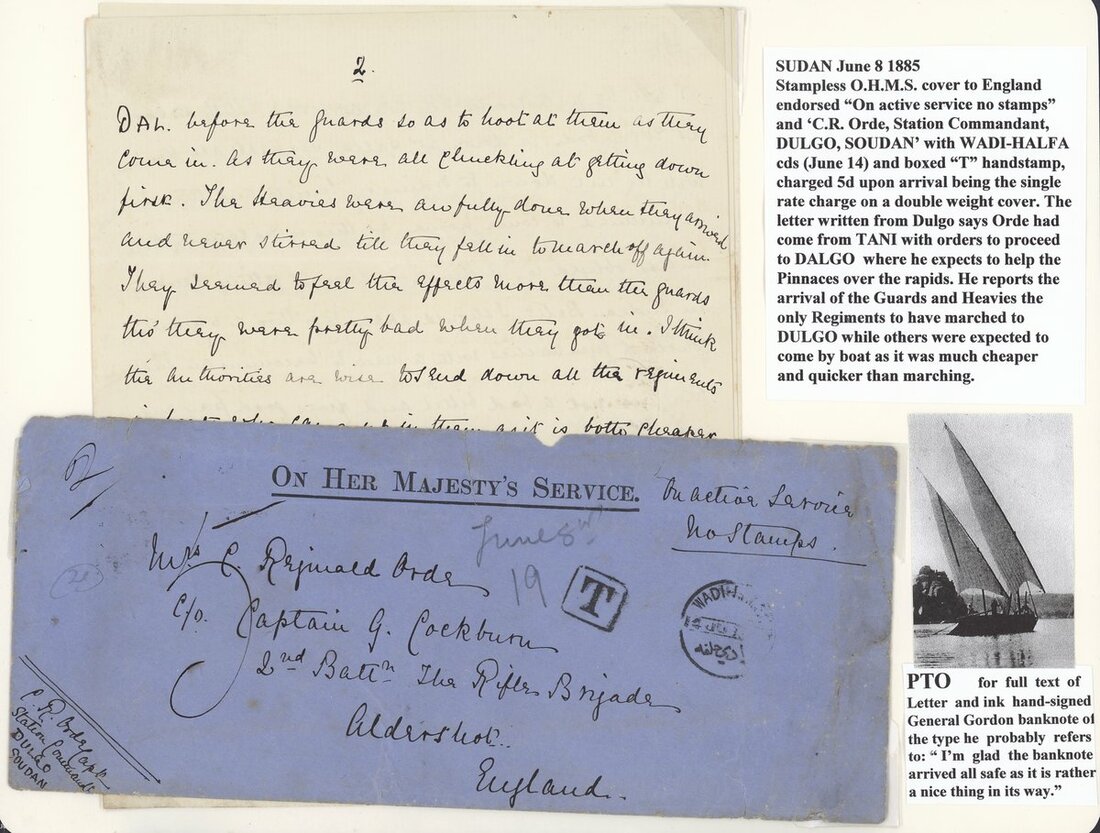 2.
DAL. before the Guards so as to hoot at them as they
come in. As they were all chuckling at getting down
first. The Heavies were awfully done when they arrived
and never stirred till they fell in to march off again.
They seemed to feel the effects more than the guards
tho' they were pretty bad when they got in. I think
the authorities are wise to send down all the regiments
in them as it is both cheaper
SUDAN June 8 1885
Stampless O.H.M.S. cover to England
endorsed “On active service no stamps”
and ‘C.R. Orde, Station Commandant,
DULGO, SOUDAN’ with WADI-HALFA
cds (June 14) and boxed “T” handstamp,
charged 5d upon arrival being the single
rate charge on a double weight cover. The
letter written from Dulgo says Orde had
come from TANI with orders to proceed
to DALGO where he expects to help the
Pinnaces over the rapids. He reports the
arrival of the Guards and Heavies the
only Regiments to have marched to
DULGO while others were expected to
come by boat as it was much cheaper
and quicker than marching.
ON HER MAJESTY'S SERVICE.
On active Service
No Stamps.
June 8th
19
T
WADI-H
Mrs C. Reginald Orde
c/o. Captain G. Cockburn
2nd Battn The Rifle Brigade
Aldershot.
England.
C. R. Orde Capt
Station Commandt
DULGO
SOUDAN
PTO for full text of
Letter and ink hand-signed
General Gordon banknote of
the type he probably refers
to: “ I’m glad the banknote
arrived all safe as it is rather
a nice thing in its way.”